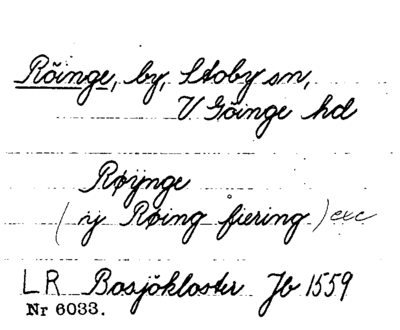 Röinge, by, Stoby sn,
V. Göinge hd
Røÿnge
(ij Røing fiering) exc
LR Bosjökloster Jb 1559
Nr 6033.